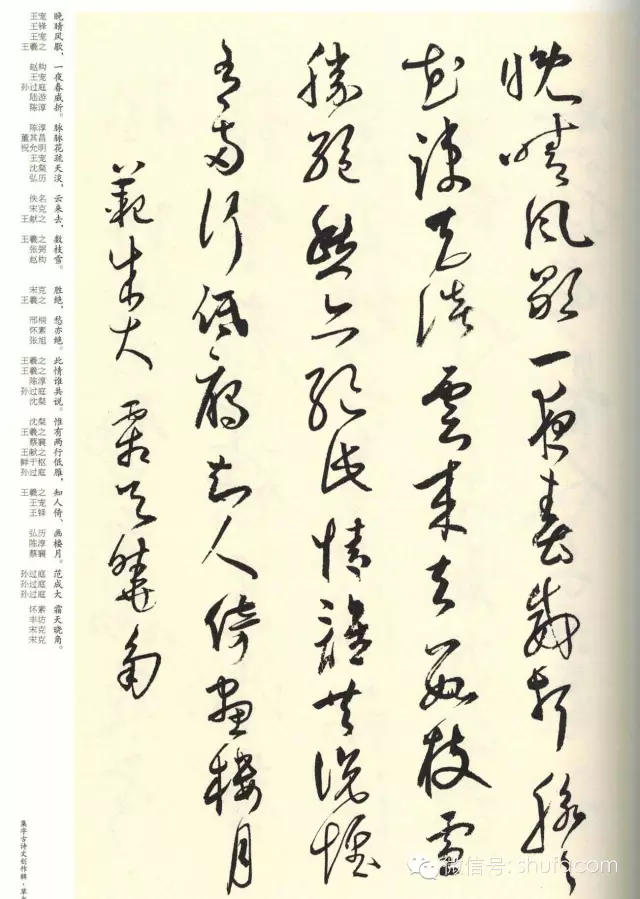 晚晴風歇一夜春威折脉々
花疎天淡雲來去數枝雪
勝絕愁亦絕此情誰共說惟
有兩行低雁知人倚畫樓月
範成大 霜天曉角
王宠 晚
王铎 晴
王宠 风
王羲之 歇，
赵构 一
王宠 夜
孙过庭 春
陆游 威
陈淳 折。
陈淳 脉
董其昌 脉
祝允明 花
王宠 疏
沈粲 天
弘历 淡，
佚名 云
宋克 来
王献之 去，
王羲之 数
张弼 枝
赵构 雪。
宋克 胜
王羲之 绝，
邢侗 愁
怀素 亦
张旭 绝。
王羲之 此
王羲之 情
陈淳 谁
孙过庭 共
沈粲 说。
沈粲 惟
王羲之 有
蔡襄 两
王献之 行
鲜于枢 低
孙过庭 雁，
王羲之 知
王宠 人
王铎 倚、
弘历 画
陈淳 楼
蔡襄 月。
孙过庭 范
孙过庭 成
孙过庭 大
怀素 霜
丰坊 天
宋克 晓
宋克 角。
集字古诗文创作辑·草
微信号: shufacom